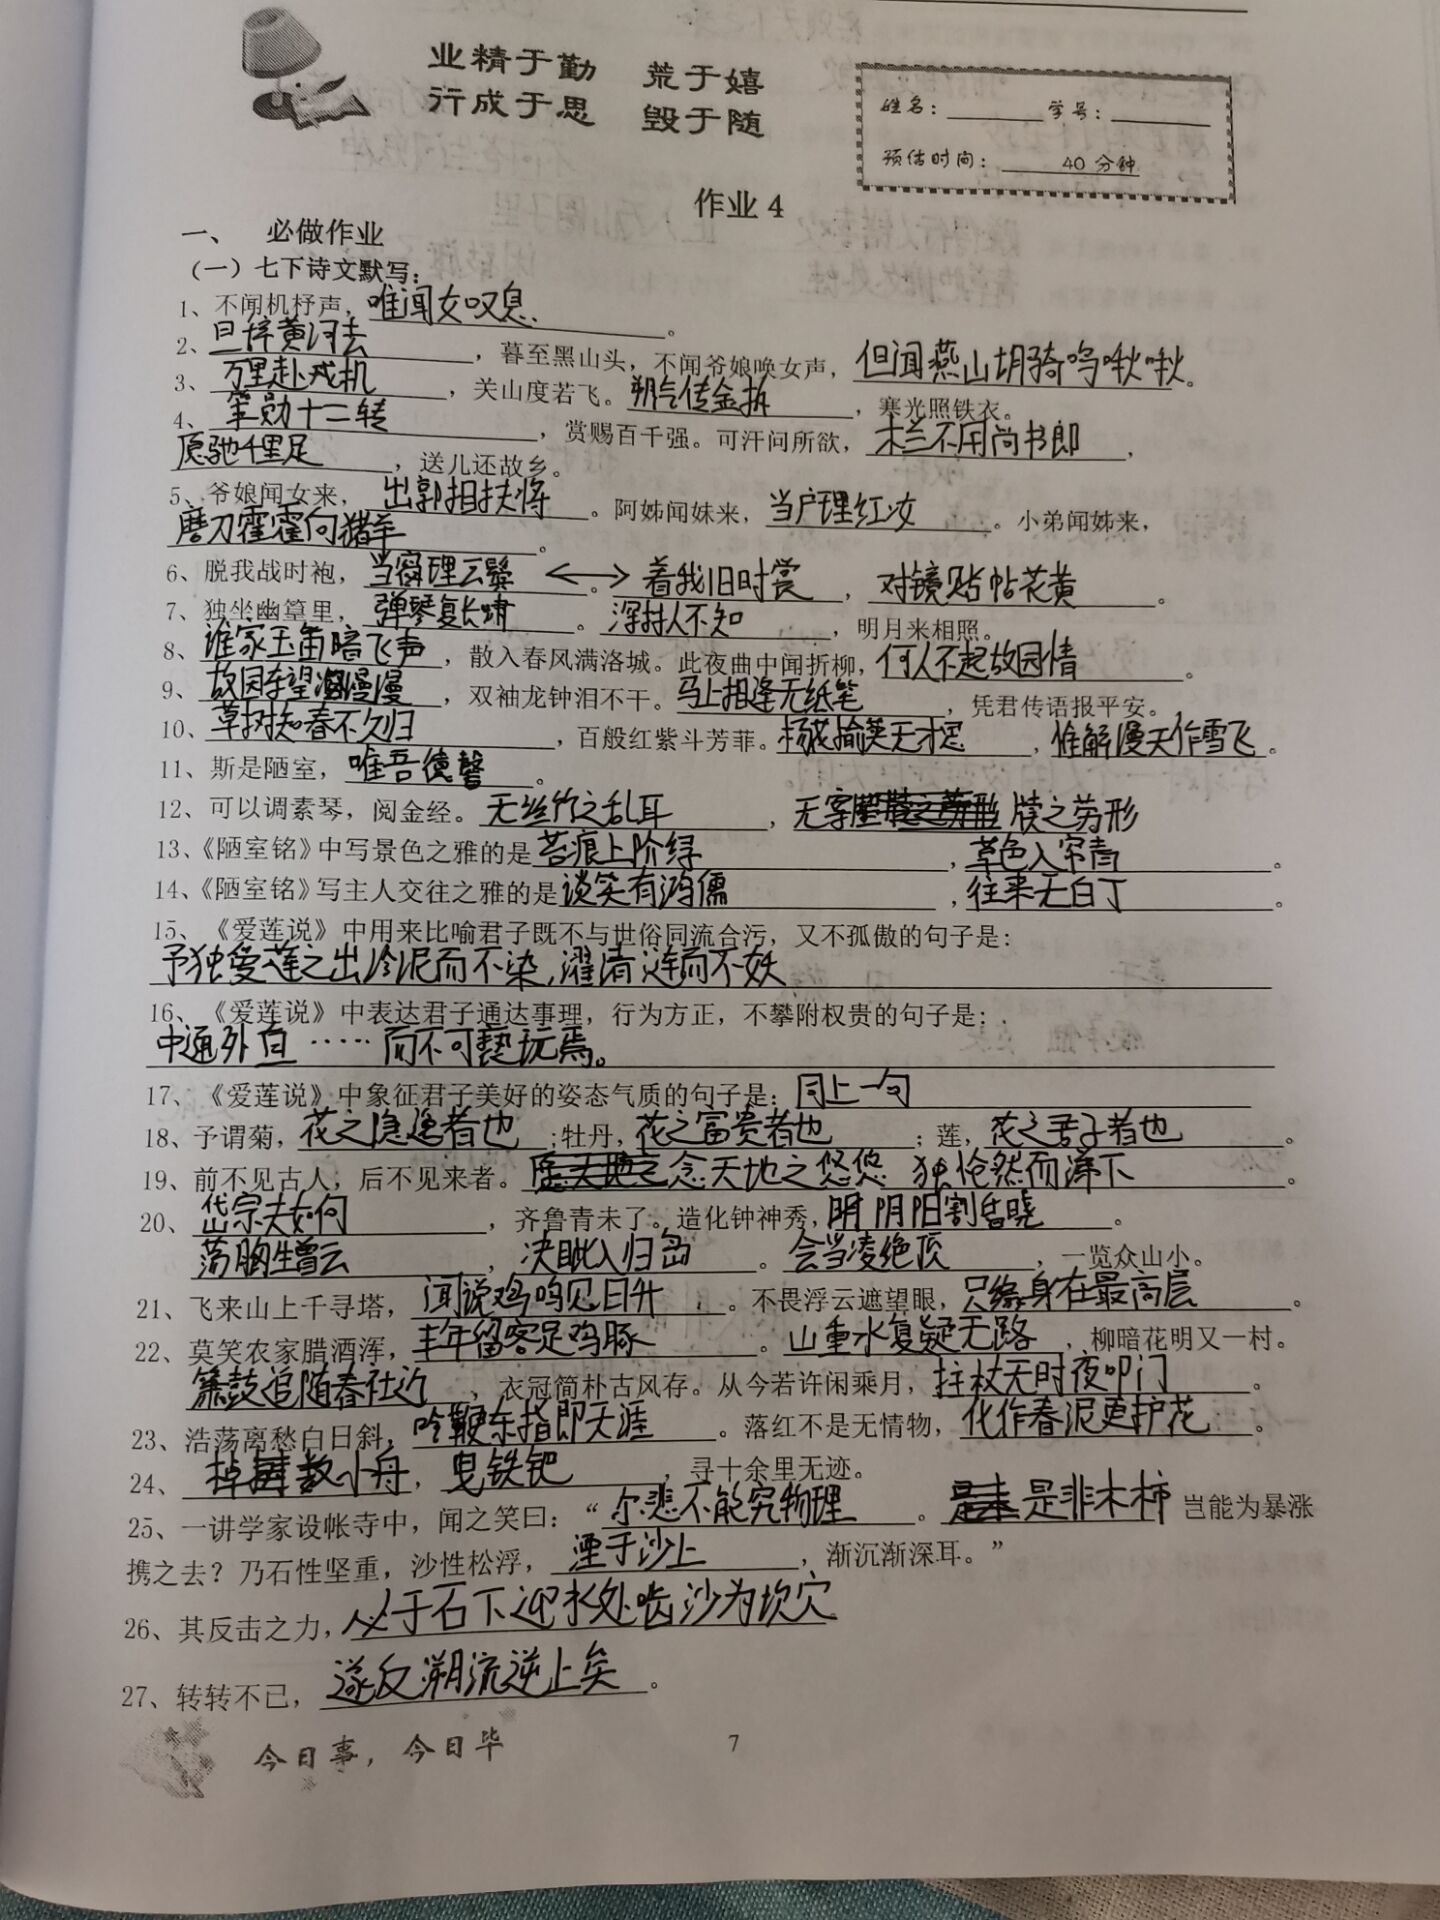 业精于勤 荒于嬉
行成于思 毁于随
姓名： 学号：
预估时间： 40 分钟
作业 4
一、 必做作业
（一）七下诗文默写：
1、不闻机杼声，唯闻女叹息。
2、旦辞黄河去，暮至黑山头，不闻爷娘唤女声，但闻燕山胡骑鸣啾啾。
3、万里赴戎机，关山度若飞。朔气传金柝，寒光照铁衣。
4、策勋十二转，赏赐百千强。可汗问所欲，木兰不用尚书郎，
愿驰千里足，送儿还故乡。
5、爷娘闻女来，出郭相扶将。阿姊闻妹来，当户理红妆。小弟闻姊来，
磨刀霍霍向猪羊。
6、脱我战时袍，当窗理云鬓。着我旧时裳，对镜贴帖花黄。
7、独坐幽篁里，弹琴复长啸。深林人不知，明月来相照。
8、谁家玉笛暗飞声，散入春风满洛城。此夜曲中闻折柳，何人不起故园情。
9、故园东望漫漫，双袖龙钟泪不干。马上相逢无纸笔，凭君传语报平安。
10、草树知春不久归，百般红紫斗芳菲。杨花榆荚无才思，惟解漫天作雪飞。
11、斯是陋室，唯吾德馨。
12、可以调素琴，阅金经。无丝竹之乱耳，无案牍之劳形
13、《陋室铭》中写景色之雅的是苔痕上阶绿，草色入帘青。
14、《陋室铭》写主人交往之雅的是谈笑有鸿儒，往来无白丁。
15、《爱莲说》中用来比喻君子既不与世俗同流合污，又不孤傲的句子是：
予独爱莲之出淤泥而不染，濯清涟而不妖
16、《爱莲说》中表达君子通达事理，行为方正，不攀附权贵的句子是：
中通外直……而不可亵玩焉。
17、《爱莲说》中象征君子美好的姿态气质的句子是：同上一句
18、予谓菊，花之隐逸者也；牡丹，花之富贵者也；莲，花之君子者也。
19、前不见古人；后不见来者。念天地之悠悠 独怆然而涕下。
20、岱宗夫如何，齐鲁青未了。造化钟神秀，阴阳割昏晓。
荡胸生曾云，决眦入归鸟。会当凌绝顶，一览众山小。
21、飞来山上千寻塔，闻说鸡鸣见日升。不畏浮云遮望眼，只缘身在最高层。
22、莫笑农家腊酒浑，丰年留客足鸡豚。山重水复疑无路，柳暗花明又一村。
箫鼓追随春社近，衣冠简朴古风存。从今若许闲乘月，拄杖无时夜叩门。
23、浩荡离愁白日斜，吟鞭东指即天涯。落红不是无情物，化作春泥更护花。
24、棹数小舟，曳铁钯，寻十余里无迹。
25、一讲学家设帐寺中，闻之笑曰：“尔悲不能究物理。是非木柿 岂能为暴涨
携之去？乃石性坚重，沙性松浮，湮于沙上，渐沉渐深耳。”
26、其反击之力，必于石下迎水处啮沙为坎穴
27、转转不已，遂反溯流逆上矣。
今日事，今日毕
7